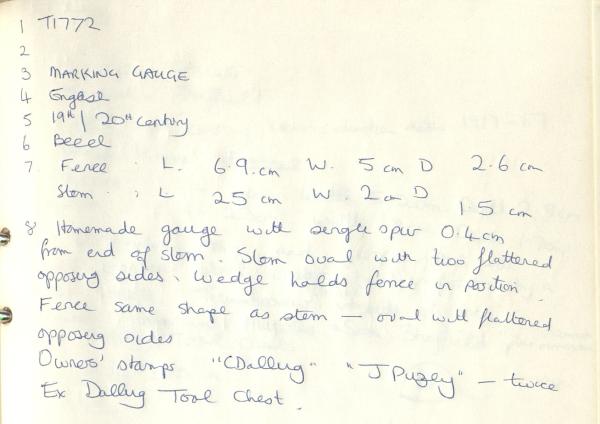 1 T1772
2
3 MARKING GAUGE
4 English
5 19th / 20th century
6 Beech
7. Fence : L. 6.9.cm W. 5 cm D 2.6 cm
Stem : L 25 cm W. 2 cm D 1.5 cm
8 Homemade gauge with single spur 0.4cm
from end of stem. Stem oval with two flattened
opposing sides. Wedge holds fence in position.
Fence same shape as stem — oval with flattened
opposing sides
Owners' stamps "CDalling" "J Puzey" — twice
Ex Dalling Tool Chest.